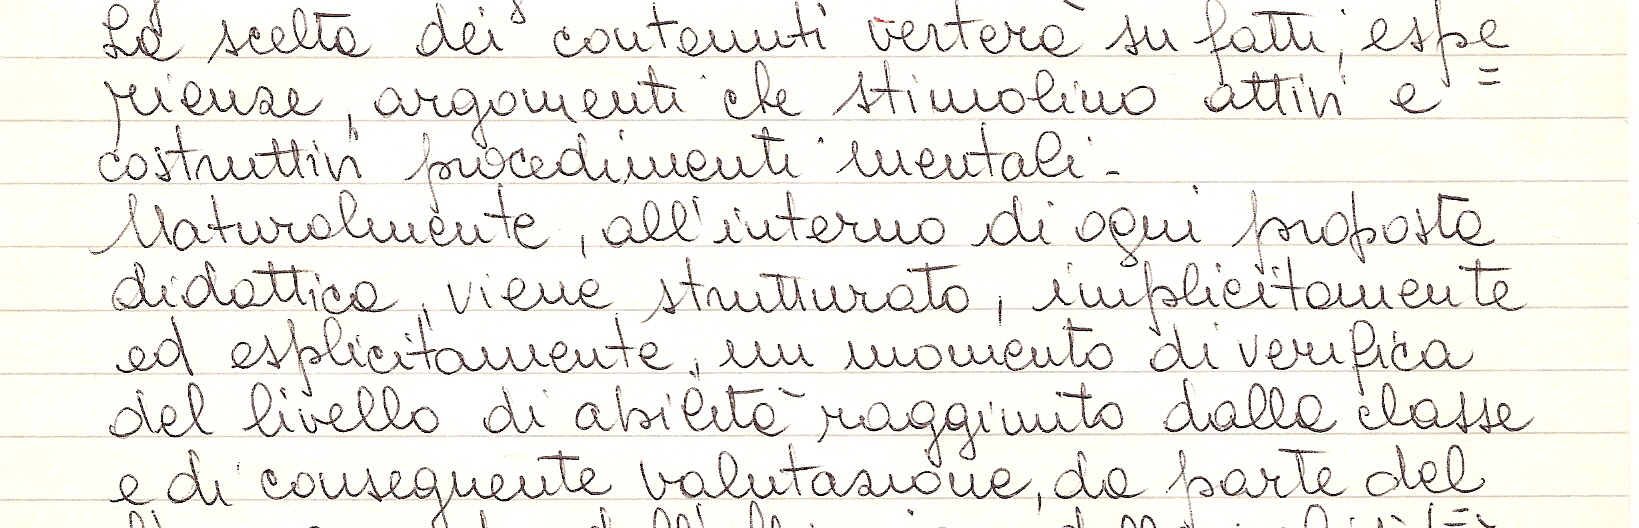 La scelta dei contenuti verterà su fatti, espe=
rienze, argomenti che stimolino attivi e
costruttivi procedimenti mentali.
Naturalmente, all'interno di ogni proposta
didattica, viene strutturato, implicitamente
ed esplicitamente, un momento di verifica
del livello di abilità raggiunto dalla classe
e di conseguente valutazione, da parte del